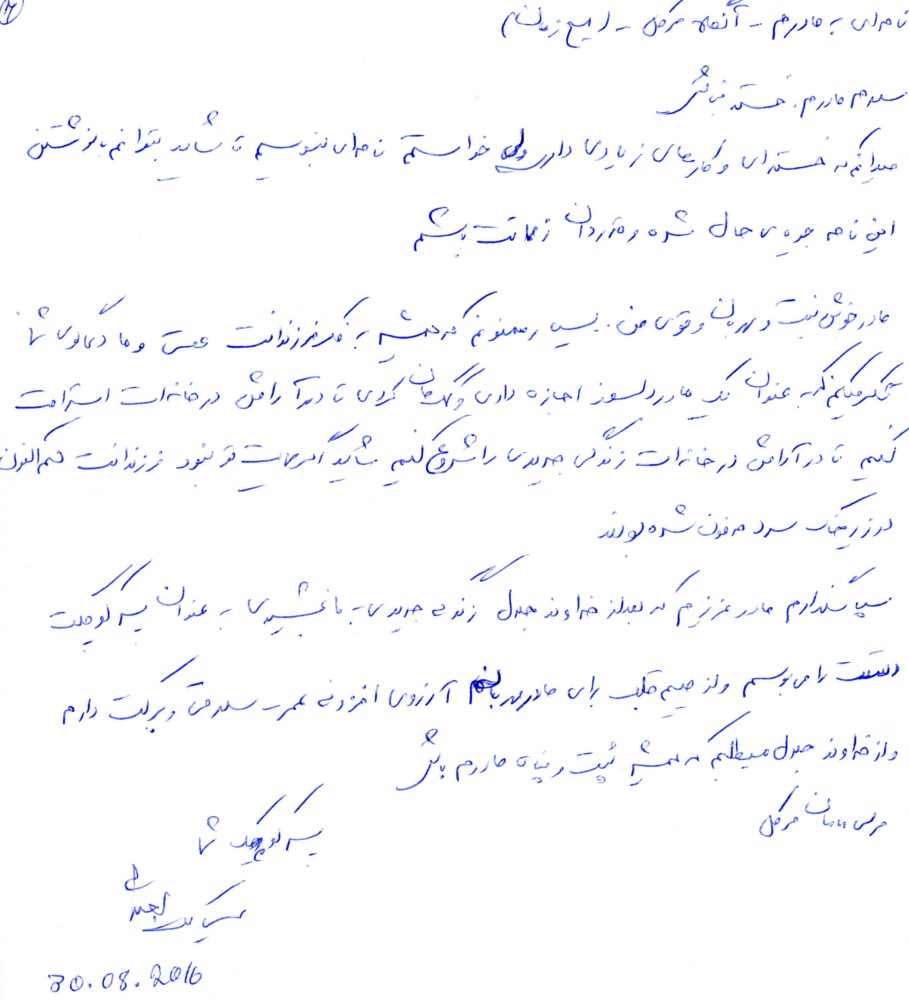 نامه‌ای به مادرم - آنگلا مرکل -
سلام مادرم. خسته نباشی
میدانم که خسته‌ای و کارهای زیادی داری ولی خواستم نامه‌ای بنویسم تا شاید بتوانم با نوشتن
این نامه جویای حال شده و قدردان زحمات باشم
مادر خوش نیت و مهربان و قوی من. بسیار ممنونم که همیشه به فکر فرزندانت هستی و ما دعاگوی شما
تشکر میکنم که به عنوان یک مادر دلسوز اجازه دادی و کمکمان کردی تا در آرامش در خانه‌ات استراحت
کنیم تا در آرامش در خانه‌ات زندگی جدیدی را شروع کنیم شاید اگر حمایت تو نبود فرزندانت هم اکنون
در زیر خاک سرد مدفون شده بودند
سپاسگذارم مادر عزیزم که بعد از خداوند جدل زندگی جدیدی به ما بخشیدی به عنوان پسر کوچکت
دستت را می بوسم و از صمیم قلب برای مادر مهربانم آرزوی افزونی عمر سلامتی و برکت دارم
و از خداوند جدل میطلبم که همیشه پشت و پناه مادرم باش
مرسی مامان مرکل
پسر کوچک شما
30.08.2016